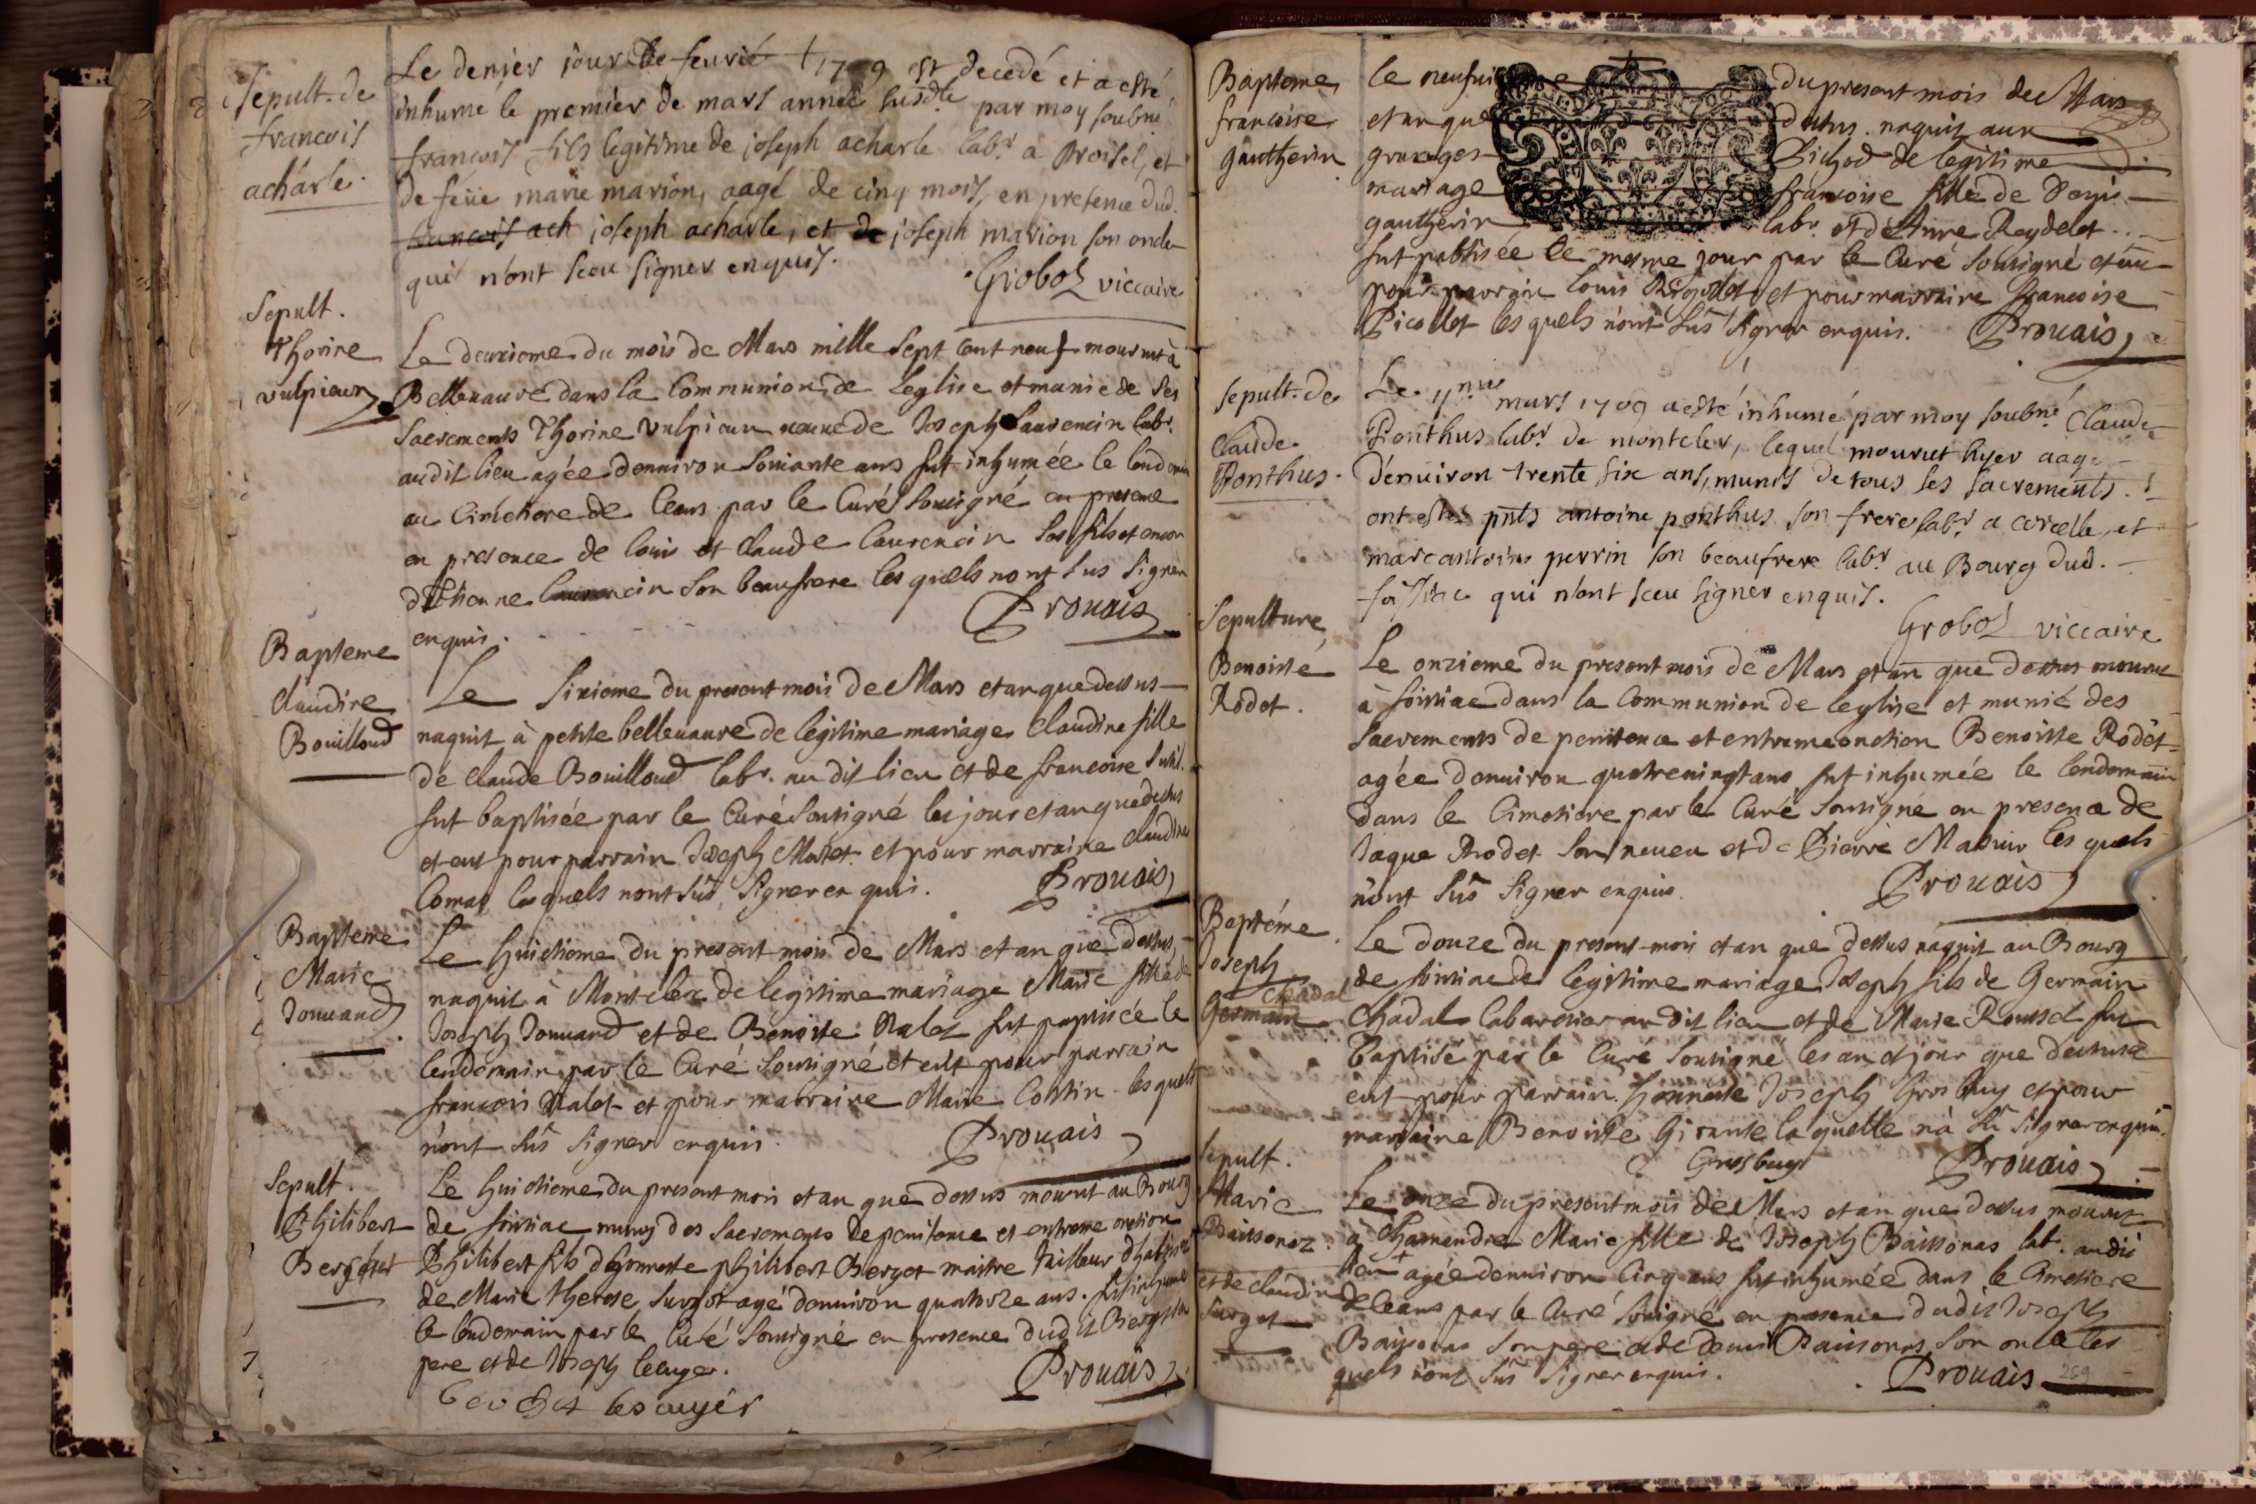 Sepult. de
francois
acharle.
Le denier jour de feurié 1709 est decedé et a esté
inhumé le premier de mars année susdte par moy soubné
francois fils legitime de joseph acharle labr. a Broisel, et
de feüe marie marion, aagé de cinq mois, en presence dud.
francois ach joseph acharle, et de joseph marion son oncle
qui n'ont sceu signer enquis.
Groboz viccaire
Sepult.
Thorine
vulpieux
Le deuxieme du mois de Mars mille sept cent neuf mourut à
Belleuaure dans la Communion de Leglise et munie de ses
sacrements Thorine vulpieux veuue de Joseph Laurencin labr.
audit lieu agée denuiron soixante ans fut inhumée le lendemain
au Cimetiere de Ceans par le Curé soussigné en presence
en presence de Louis et Claude Laurencin ses fils et encor
d'Ethienne Laurencin son beaufrere les quels nont sus signer
enquis.
Prouais
Bapteme
Claudine
Bouilloud
Le Sixieme du present mois de Mars et an que dessus
naquit à petite belleuaure de legitime mariage Claudine fille
de Claude Bouilloud labr. au dit lieu et de francoise
fut baptisée par le Curé soussigné les jour et an que dessus
et eut pour parrain Joseph Matet et pour marraine Claudine
Comas les quels nont sus signer enquis.
Prouais
Bapteme
Marie
Jouuand
Le huictieme du present mois de Mars et an que dessus
naquit à Montclerc de legitime mariage Marie fille de
Joseph Jouuand et de Benoite Nalet fut baptisée le
lendemain par le Curé soussigné et eut pour parrain
francois Nalet et pour marraine Marie Cottin les quels
n'ont sus signer enquis.
Prouais
Sepult.
Philibert
Berget
Le huictieme du present mois et an que dessus mourut au Bourg
de foissiac muny des sacrements de penitence et extreme onction
Philibert fils d'honneste philibert Berget maitre tailleur d'habits et
de Marie therese Surget agé denuiron quatorze ans. fut inhumé
le lendemain par le Curé soussigné en presence dudit Berget son
pere et de Joseph
Prouais
Bapteme
francoise
gautherin
le neufuieme du present mois de Mars
et an que dessus naquit aux
granges Bichod de legitime
mariage francoise fille de Denis
gautherin labr. et d'Anne Reydelet
fut baptisée le mesme jour par le Curé soussigné et eut
pour parrain Louis Reydelet et pour marraine francoise
Picollet les quels n'ont sus signer enquis. Prouais
Sepult. de
Claude
Ponthus.
Le 11me mars 1709 a esté inhumé par moy soubné Claude
Ponthus labr. de montcler, lequel mourut hyer aagé
d'enuiron trente six ans, munis de tous les sacrements.
ont estés pnts antoine ponthus son frere labr. a corcelle, et
marc antoine perrin son beaufrere labr. au Bourg dud.
foissiac qui n'ont sceu signer enquis.
Groboz viccaire
Sepulture
Benoiste
Rodet.
Le onzieme du present mois de Mars et an que dessus mourut
à foissiac dans la Communion de leglise et munie des
sacrements de penitence et extreme onction Benoiste Rodet
agée denuiron quatreuingt ans fut inhumée le lendemain
dans le Cimetiere par le Curé soussigné en presence de
Jaque Rodet son neueu et de Pierre Mathieu les quels
n'ont sus signer enquis.
Prouais
Baptéme
Joseph
Chadal
Germain
Le douze du present mois et an que dessus naquit au Bourg
de foissiac de legitime mariage Joseph fils de Germain
Chadal Cabaretier au dit lieu et de Marie Roussel fut
Baptisé par le Curé soussigné les an et jour que dessus et
eut pour parrain honneste Joseph Grosbuy et pour
marraine Benoiste Girante la quelle n'a su signer enquis.
Grosbuy
Prouais
Sepult.
Marie
Baissonaz
et de Claudine
Surget
Le onze du present mois de Mars et an que dessus mourut
à Chamandre Marie fille de Joseph Baissonas labr. audit
lieu + agée denuiron Cinq ans fut inhumée dans le Cimetiere
de Ceans par le Curé soussigné en presence dudit Joseph
Baissonas son pere et de Denis Baissonas son oncle les
quels n'ont sus signer enquis.
Prouais
269